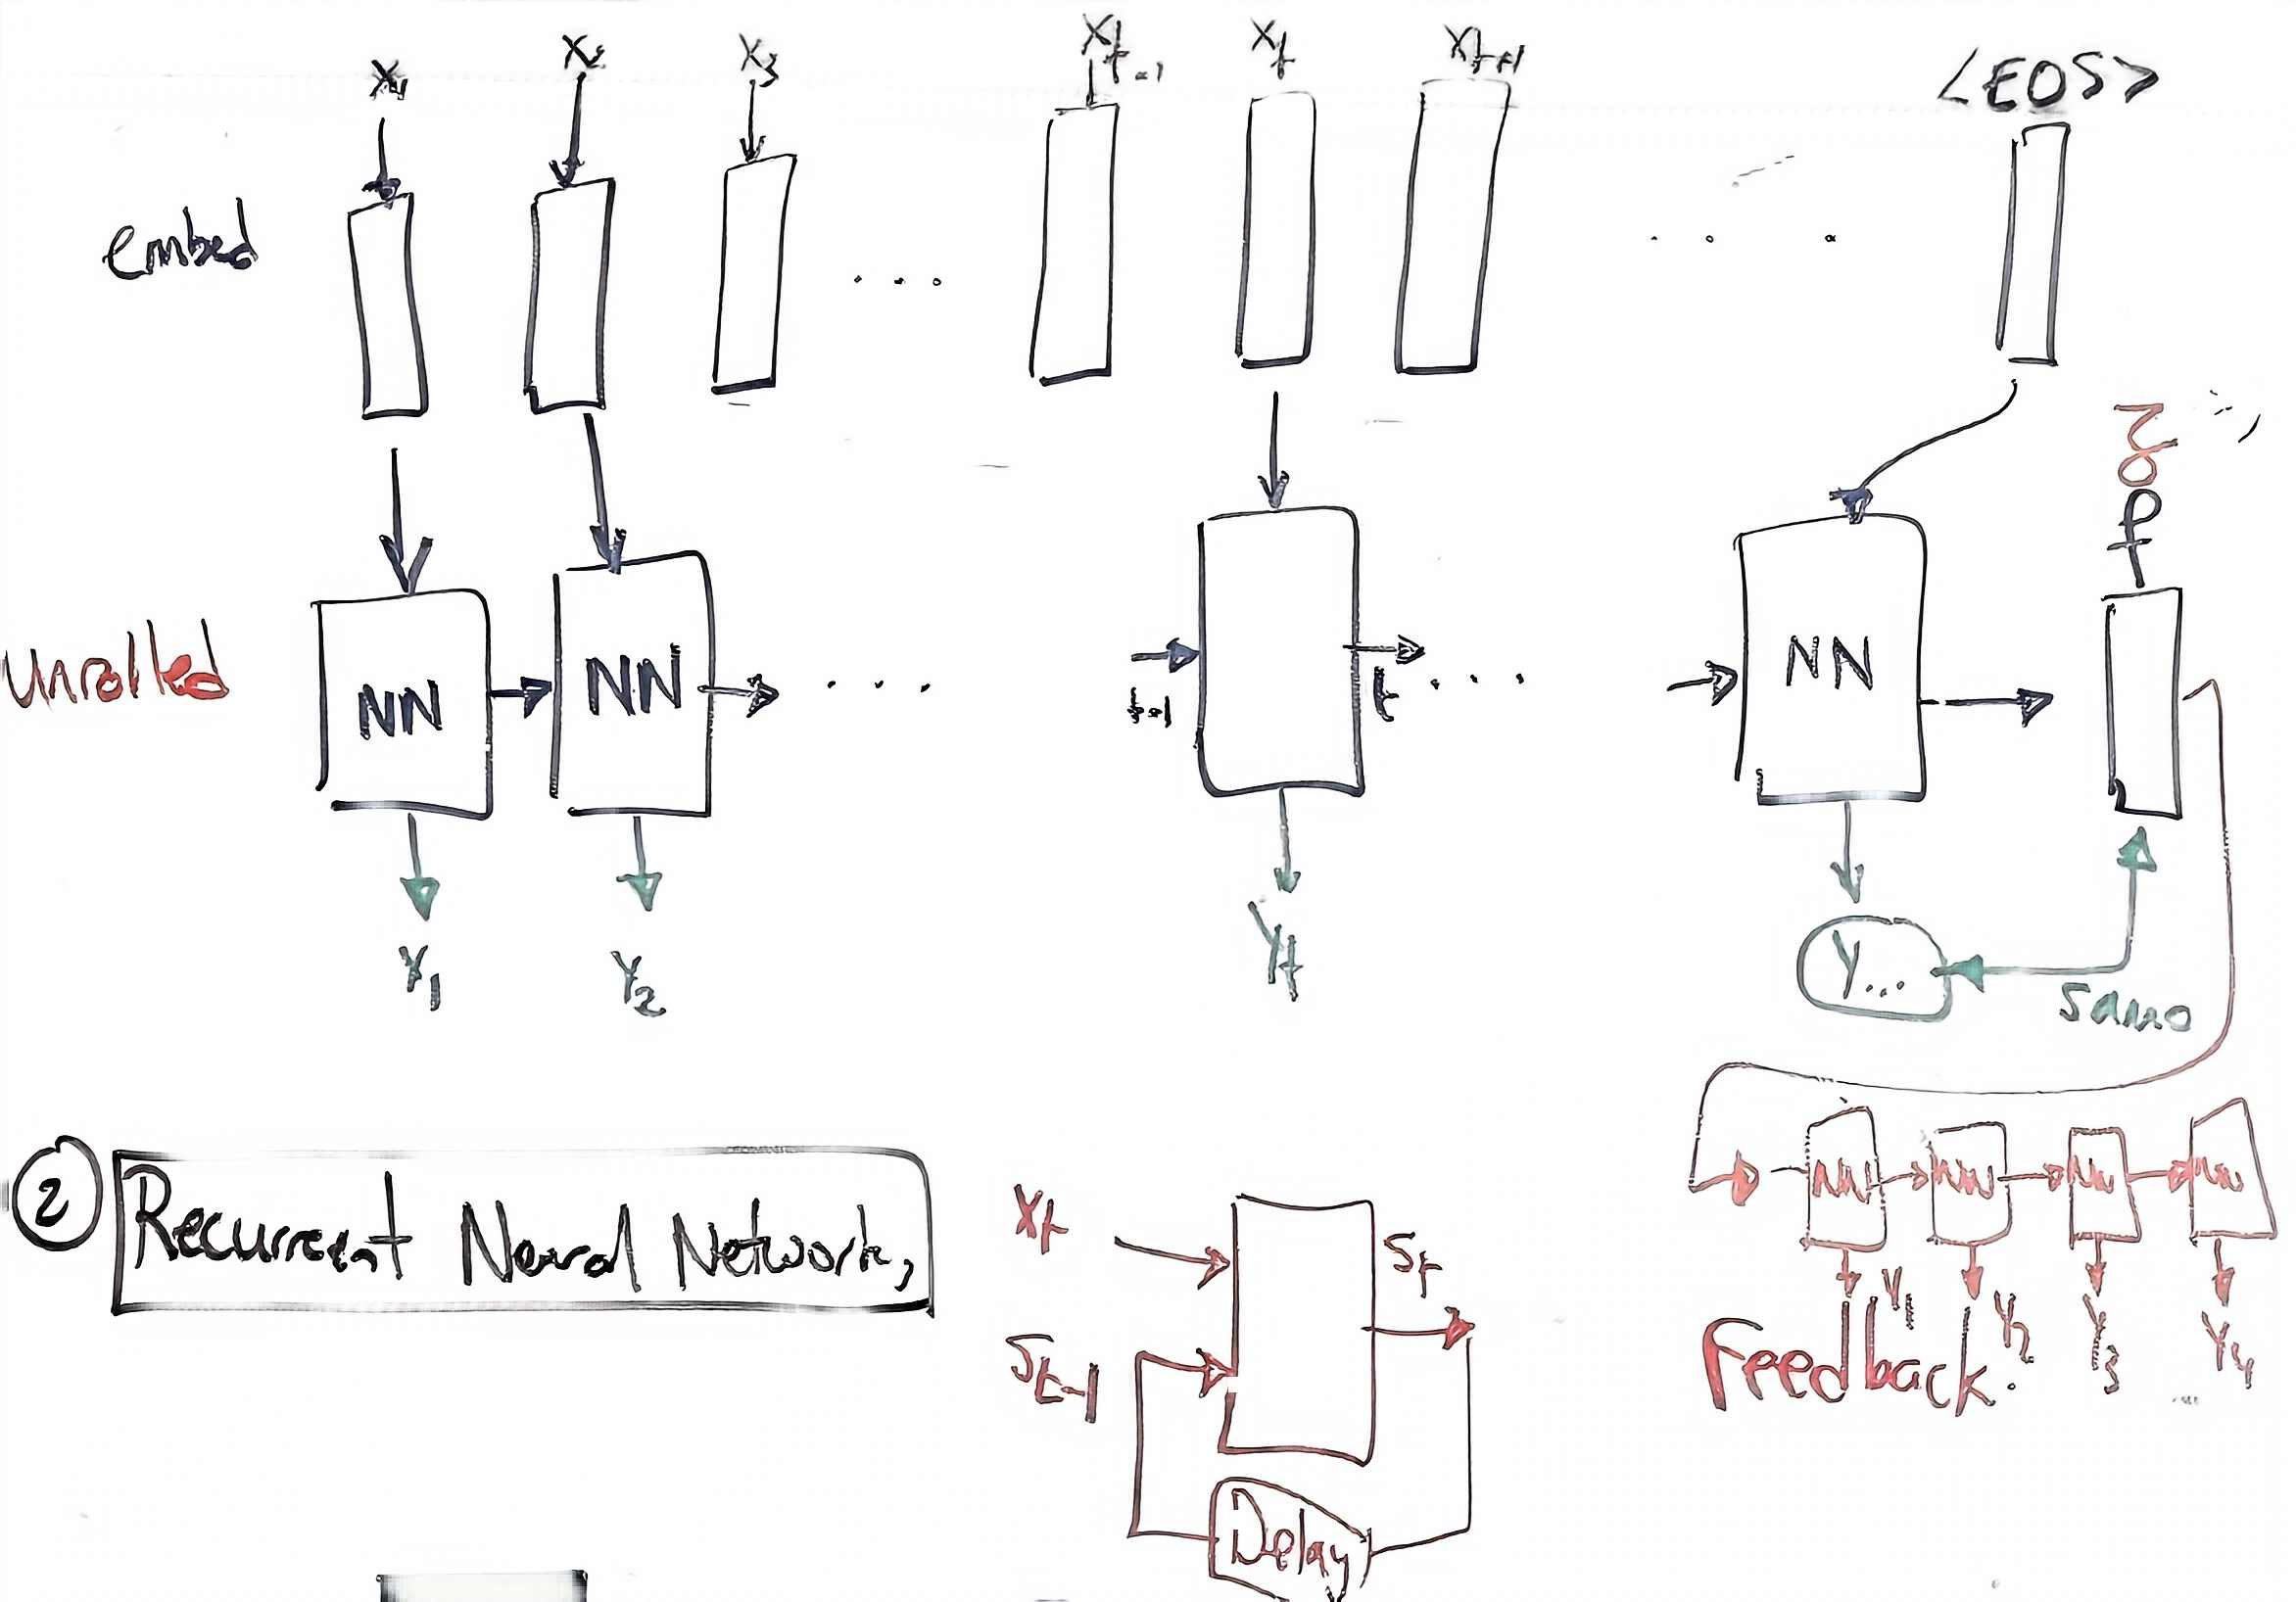 X1 X2 X3 Xt-1 Xt Xt+1 <EOS>
embed
unrolled
NN NN NN
t-1 t
Y1 Y2 Yt Y...
same
② Recurrent Neural Network,
Xt
St
St-1
Delay
NN NN NN NN
Y1 Y2 Y3 Y4
Feedback.